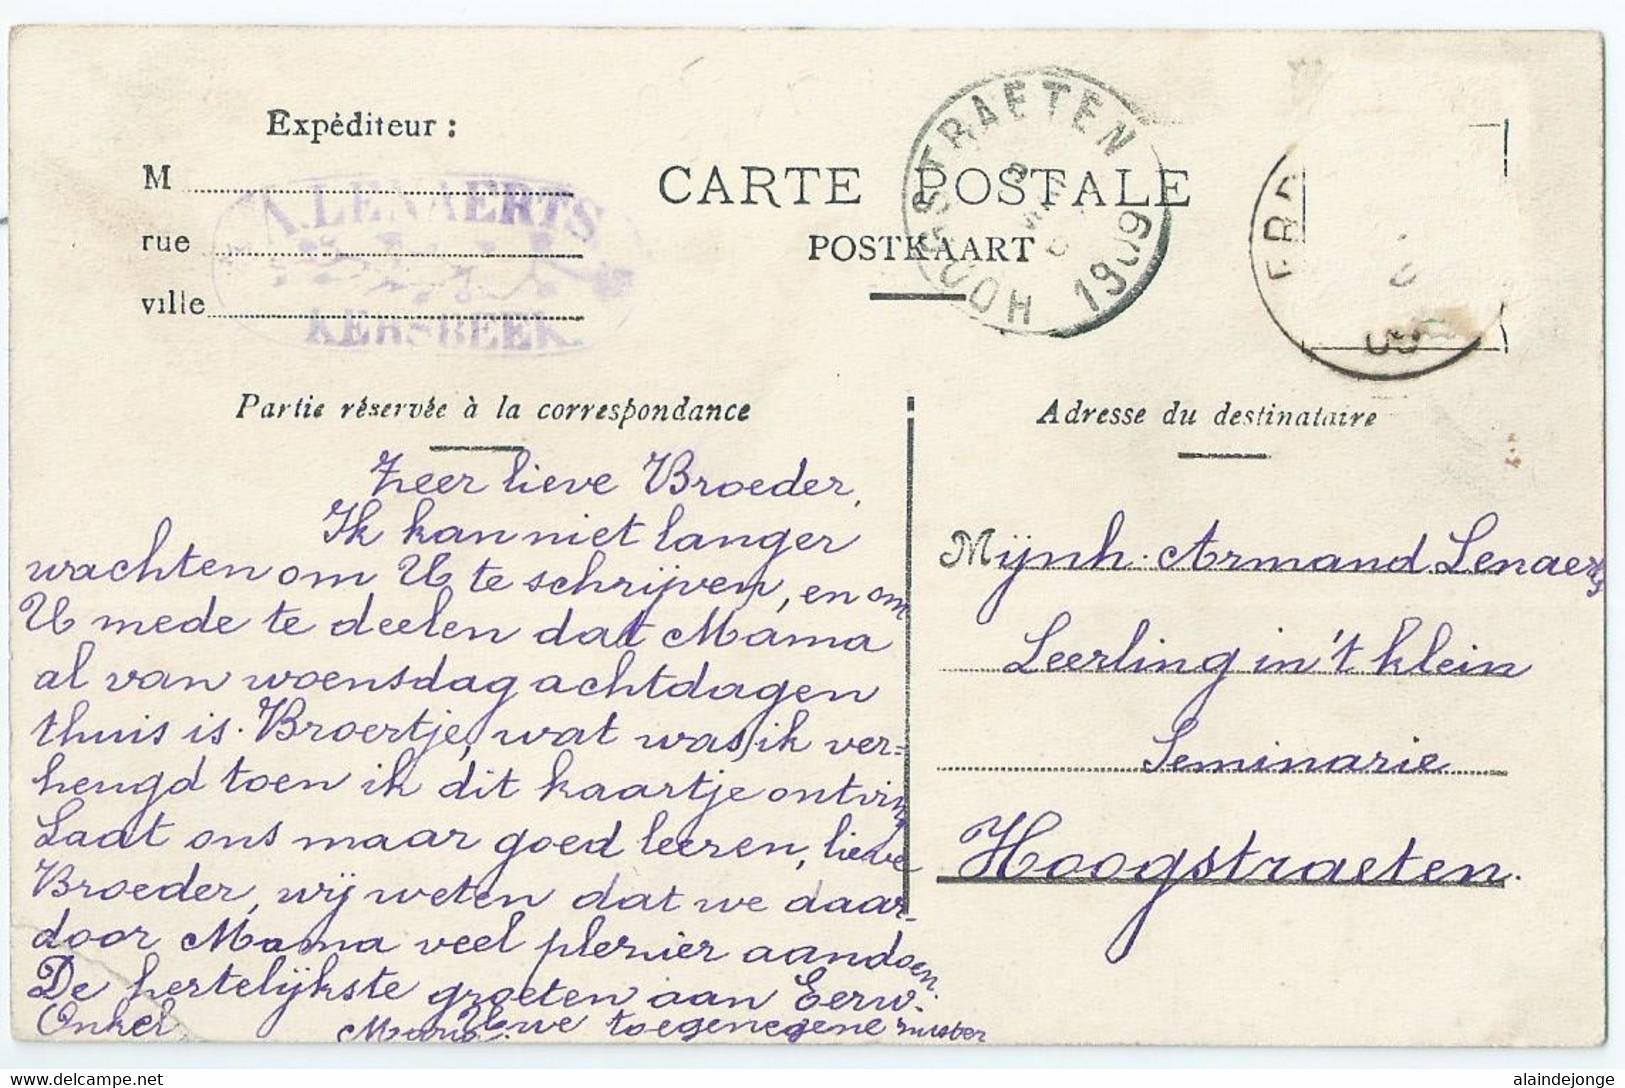 Expéditeur :
M
rue
ville
A. LENAERTS
KERSBEEK.
CARTE POSTALE
POSTKAART
HOOGSTRAETEN
1909
09
Partie réservée à la correspondance
Adresse du destinataire
Zeer lieve Broeder,
Ik kan niet langer
wachten om U te schrijven, en om
U mede te deelen dat Mama
al van woensdag achtdagen
thuis is. Broertje, wat was ik ver=
heugd toen ik dit kaartje ontving
Laat ons maar goed leeren, lieve
Broeder, wij weten dat we daar-
door Mama veel plezier aandoen.
De hertelijkste groeten aan Eerw.
Onkel
Uwe toegenegene zuster
Maria
Mijnh. Armand Lenaerts
Leerling in 't klein
Seminarie
Hoogstraeten.
www.delcampe.net
alaindejonge